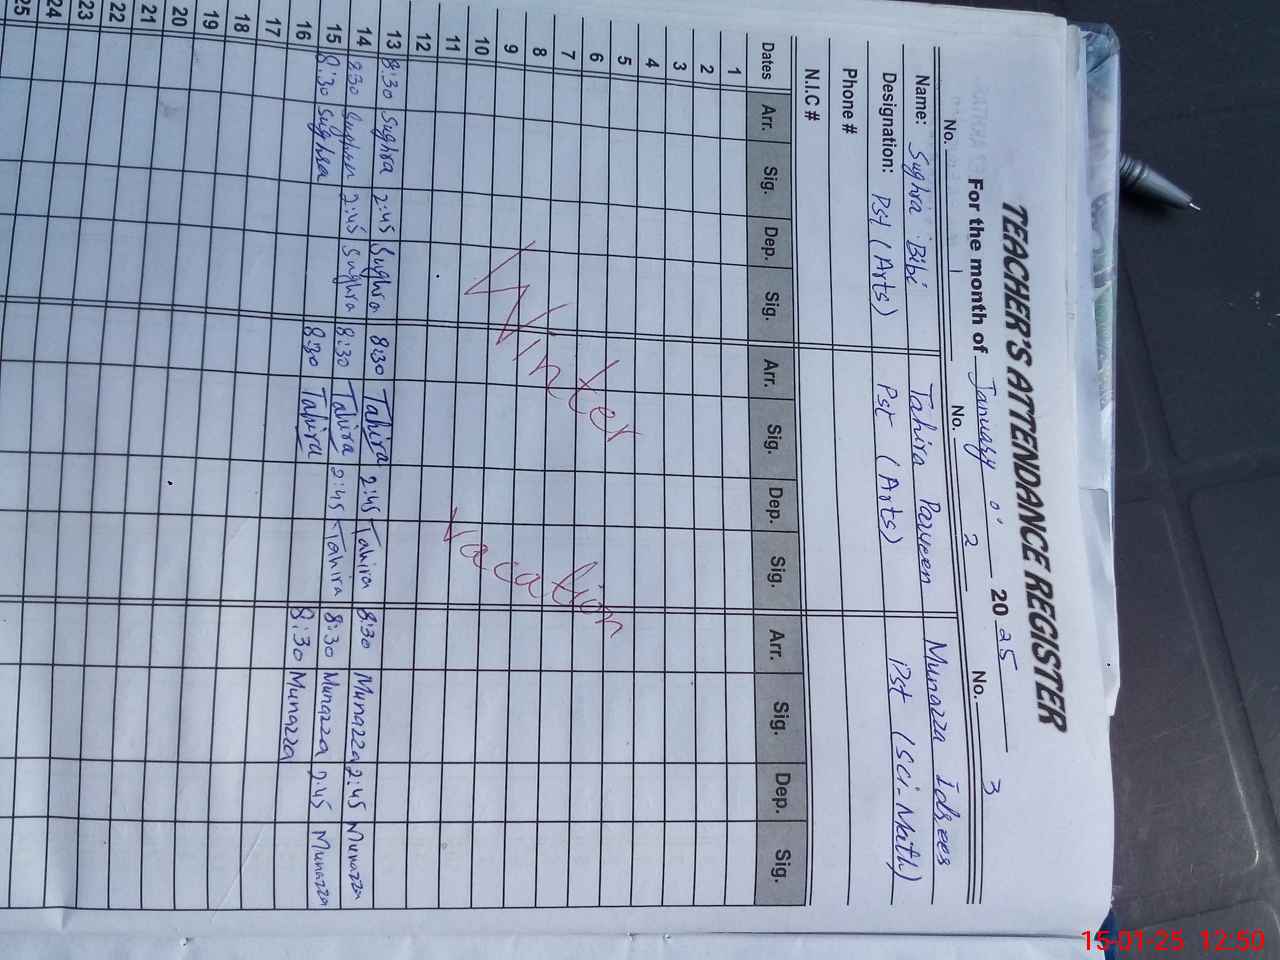 TEACHER'S ATTENDANCE REGISTER
For the month of January 2025
No. 1 No. 2 No. 3
Name: Sughra Bibi Tahira Parveen Munazza Idrees
Designation: Pst (Arts) Pst (Arts) Pst (Sci-Math)
Phone #
N.I.C #
Dates Arr. Sig. Dep. Sig. Arr. Sig. Dep. Sig. Arr. Sig. Dep. Sig.
1
2
3
4
5
6
7
8
9
10
11
12
Winter vacation
13 8:30 Sughra 2:45 Sughra 8:30 Tahira 2:45 Tahira 8:30 Munazza 2:45 Munazza
14 8:30 Sughra 2:45 Sughra 8:30 Tahira 2:45 Tahira 8:30 Munazza 2:45 Munazza
15 8:30 Sughra 8:30 Tahira 8:30 Munazza
16
17
18
19
20
21
22
23
24
25
15-01-25 12:50